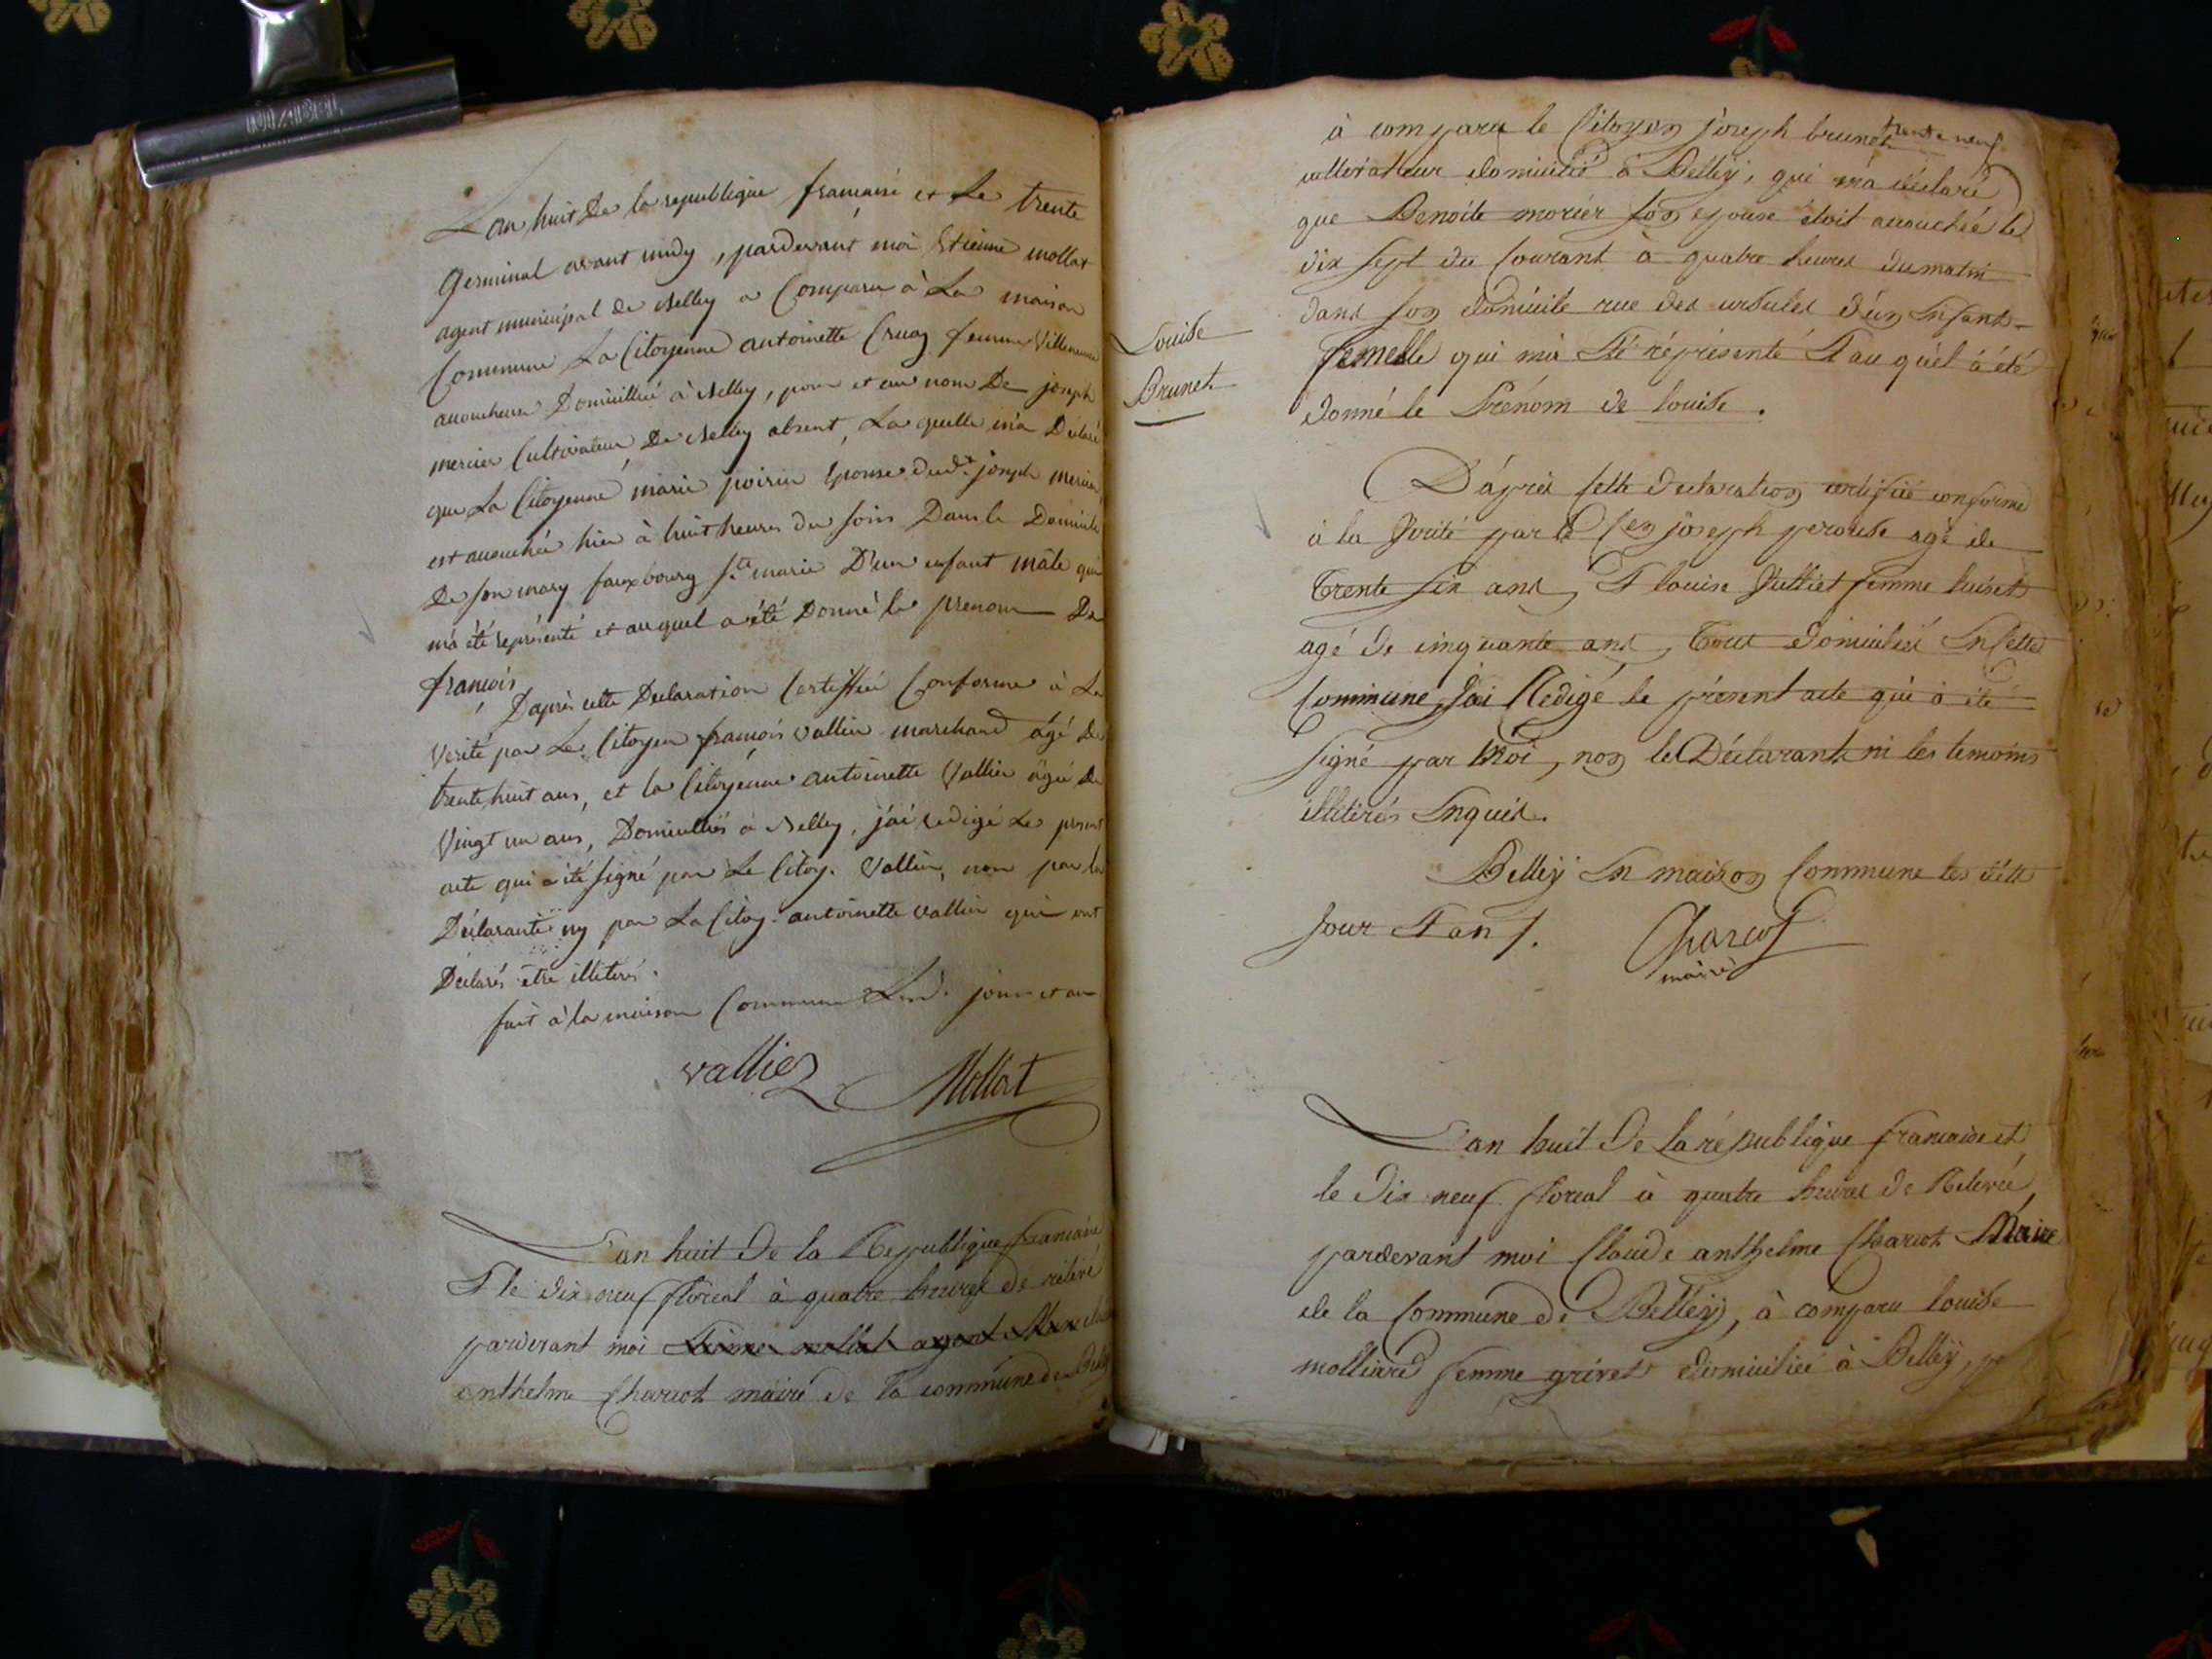 L'an huit De la republique francaise et Le trente
Germinal avant midy, pardevant moi Etienne mollat
agent municipal de Belley a Comparu à La maison
Commune La Citoyenne antoinette Cruaz femme Villeneuve
accoucheuse Domiciliée à Belley, pour et au nom De joseph
mercier Cultivateur De Belley absent, La quelle m'a Déclaré
que La Citoyenne marie poirin Epouse dud.t joseph mercier
est accouchée hier à huit heures du soir Dans le Domicile
De son mary fauxbourg s.te marie D'un enfant mâle qui
m'a été représenté et auquel a été Donné le prenom De
françois
D'après cette Declaration Certiffiée Conforme à La
Verité par Le Citoyen françois vallier marchand âgé De
trente huit ans, et la Citoyenne antoinette Vallier âgée De
Vingt un ans, Domiciliés à Belley, j'ai redigé Le present
acte qui a été signé par Le Citoy. Vallier, non par la
Déclarante ny par La Citoy. antoinette vallier qui ont
Déclarés être illiterés.
fait à la maison Commune Lesd. jour et an
vallier Mollat
L'an huit De la Republique francaise
Et le dix neuf floréal à quatre heures de relevé
pardevant moi Etienne mollat agent
anthelme Charcot maire de la commune de Belley
trente neuf
à comparu le Citoyen joseph brunet
cultivateur domicilié à Belley, qui m'a déclaré
que Benoite morier son epouse étoit accouchée le
dix sept du Courant à quatre heures du matin
dans son domicile rue des ursules d'un Enfant
femelle qui m'a Eté réprésenté Et au quel à été
donné le Prénom de louise.
Louise
Brunet
D'áprès Cette declaration certifiée conforme
à la Vérité par le Cen joseph perouse agé de
Trente six ans, Et louise Julliet femme huiset
agé de cinquante ans, Tous domiciliés En Cette
Commune, J'ai Redigé le présent acte qui à été
signé par Moi, non le Déclarant ni les temoins
illitérés Enquis.
Belley En maison Commune les dits
Jour Et an.
Charcot
maire
L'an huit De la république francaise et
le Dix neuf floreal à quatre heures de Relevée,
pardevant moi Claude anthelme Charcot Maire
de la Commune de Belley, à comparu louise
molliard femme grivet domiciliée à Belley,